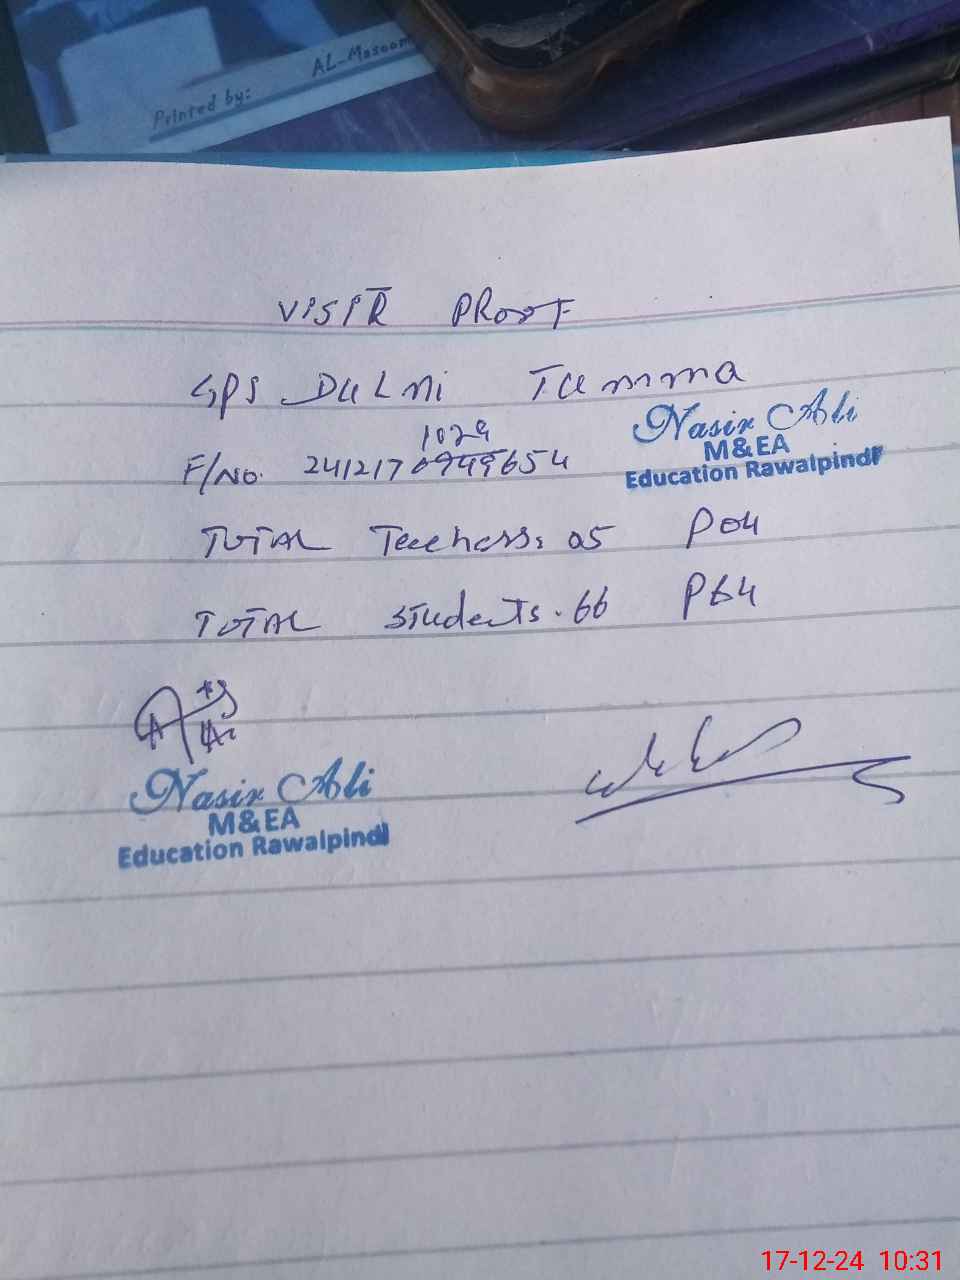 Printed by: AL-Masoom
VISIT PROOF
GPS DULMI TUMMA
1029
F/NO. 2412170949654
Nasir Ali
M&EA
Education Rawalpindi
TOTAL Teechers: 05 P04
TOTAL STUdenTs. 66 P64
Nasir Ali
M&EA
Education Rawalpindi
17-12-24 10:31